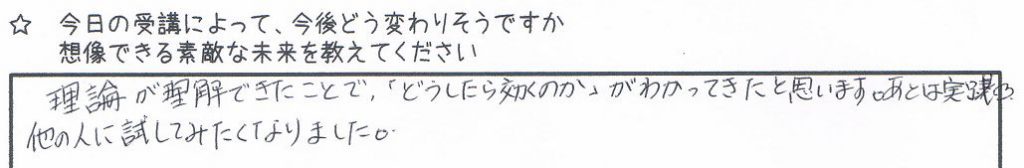 ☆ 今日の受講によって、今後どう変わりそうですか
想像できる素敵な未来を教えてください
理論が理解できたことで、「どうしたら効くのか」がわかってきたと思います。あとは実践。
他の人に試してみたくなりました。